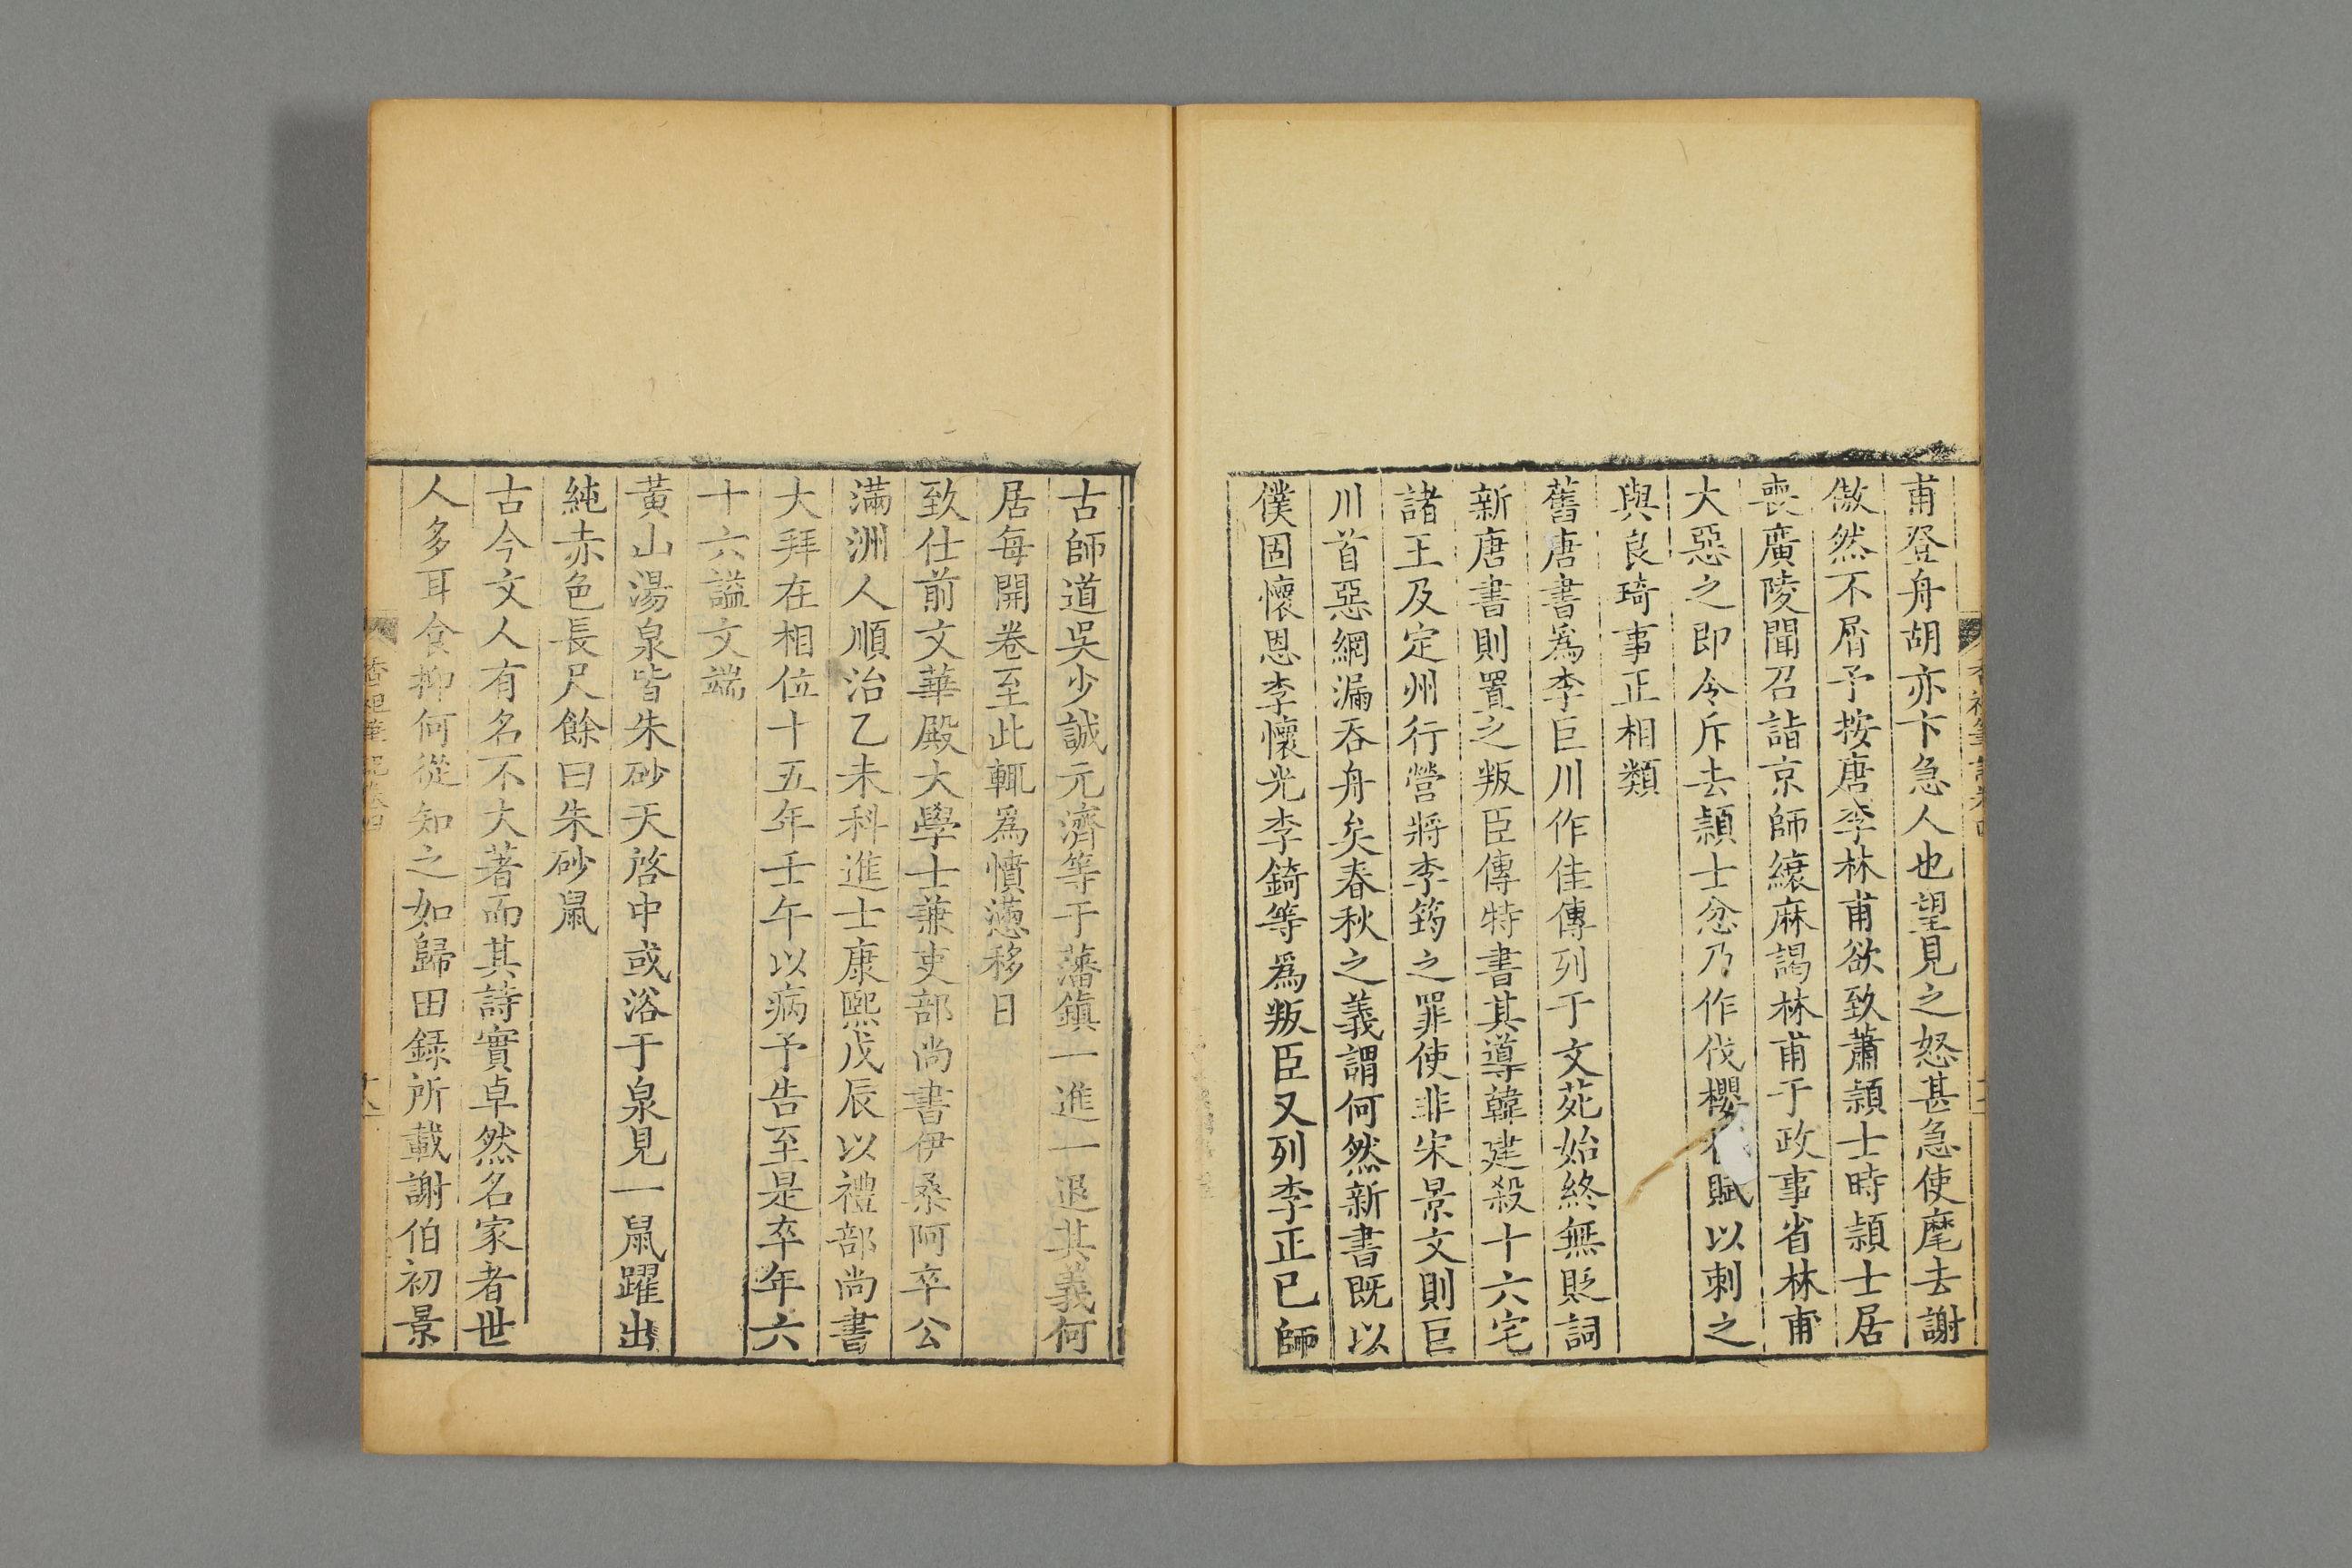 甫登舟胡亦卞急人也望見之怒甚急使麾去謝
傲然不屑予按唐李林甫欲致蕭頴士時頴士居
喪廣陵聞召詣京師縗麻謁林甫于政事省林甫
大惡之即令斥去頴士忿乃作伐櫻桃賦以刺之
與良琦事正相類
舊唐書爲李巨川作佳傳列于文苑始終無貶詞
新唐書則置之叛臣傳特書其導韓建殺十六宅
諸王及定州行營將李筠之罪使非宋景文則巨
川首惡網漏吞舟矣春秋之義謂何然新書既以
僕固懷恩李懷光李錡等爲叛臣又列李正已師
古師道吳少誠元濟等于藩鎮一進一退其義何
居每開卷至此輒爲憤懣移日
致仕前文華殿大學士兼吏部尚書伊桑阿卒公
滿洲人順治乙未科進士康熙戊辰以禮部尚書
大拜在相位十五年壬午以病予告至是卒年六
十六謚文端
黃山湯泉皆朱砂天啓中或浴于泉見一鼠躍出
純赤色長尺餘曰朱砂鼠
古今文人有名不大著而其詩實卓然名家者世
人多耳食抑何從知之如歸田錄所載謝伯初景
香祖筆記卷四